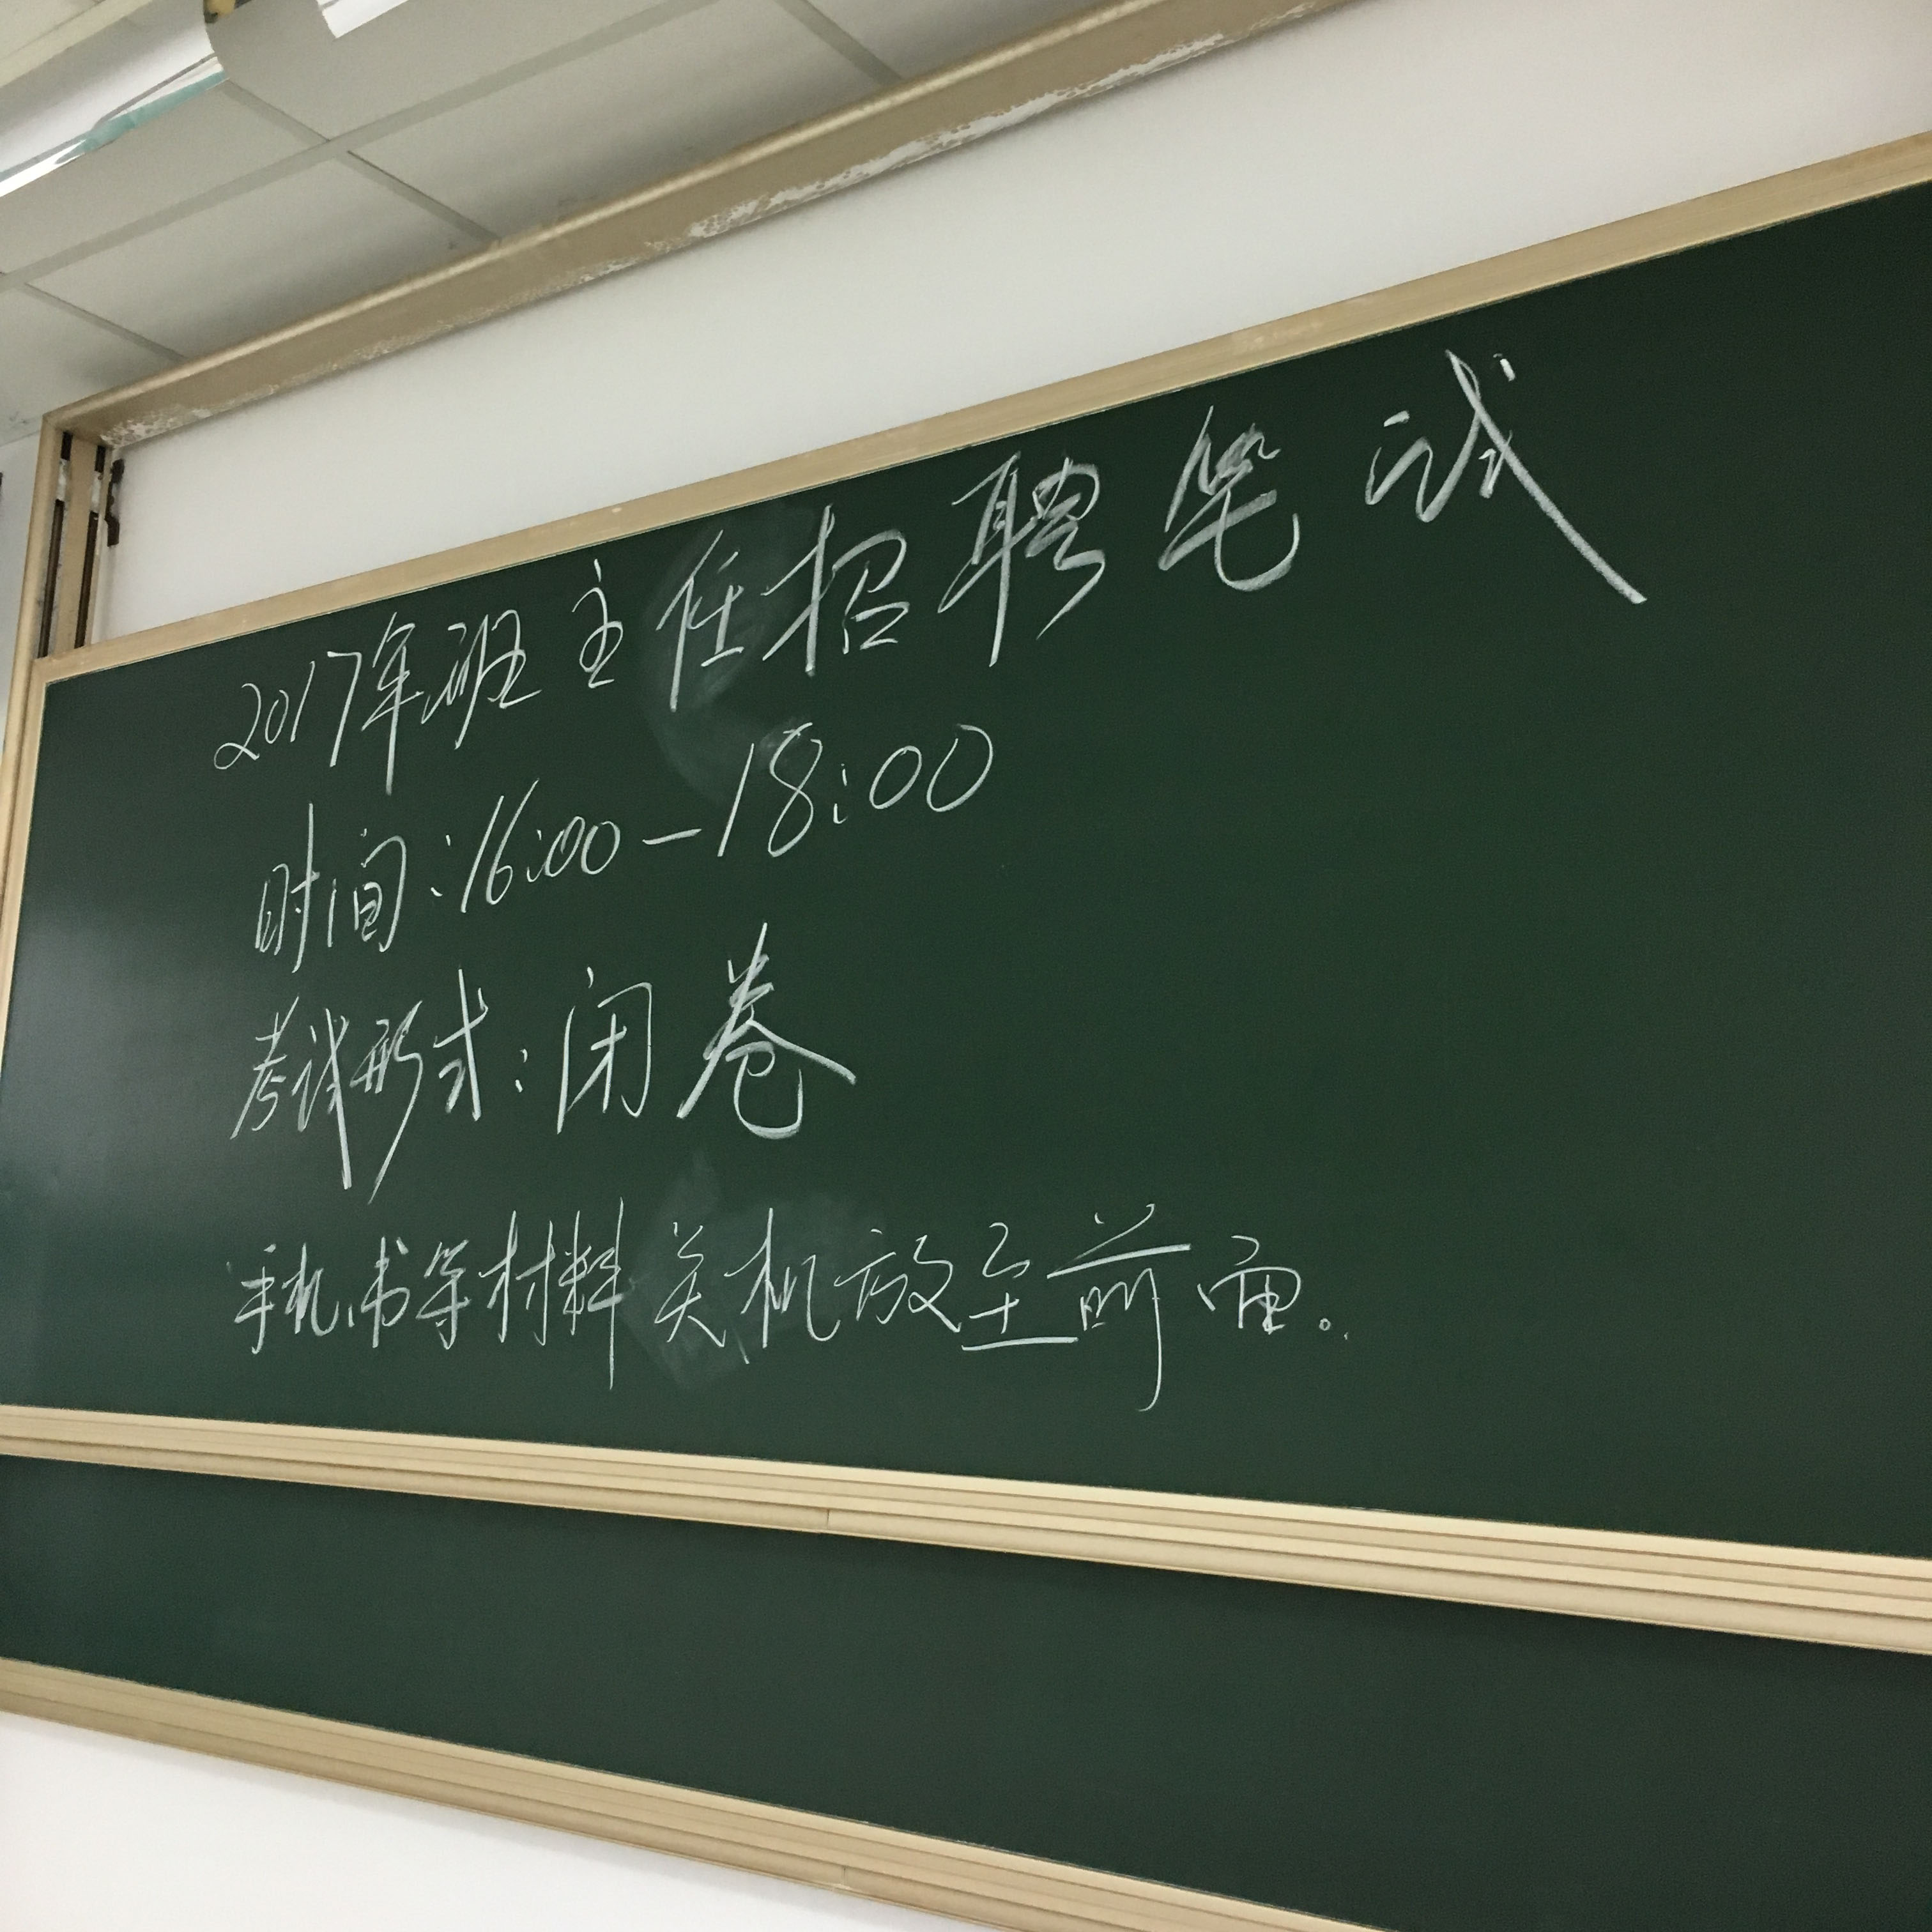 2017年班主任招聘笔试
时间:16:00-18:00
考试形式:闭卷
手机书等材料关机放至前面。